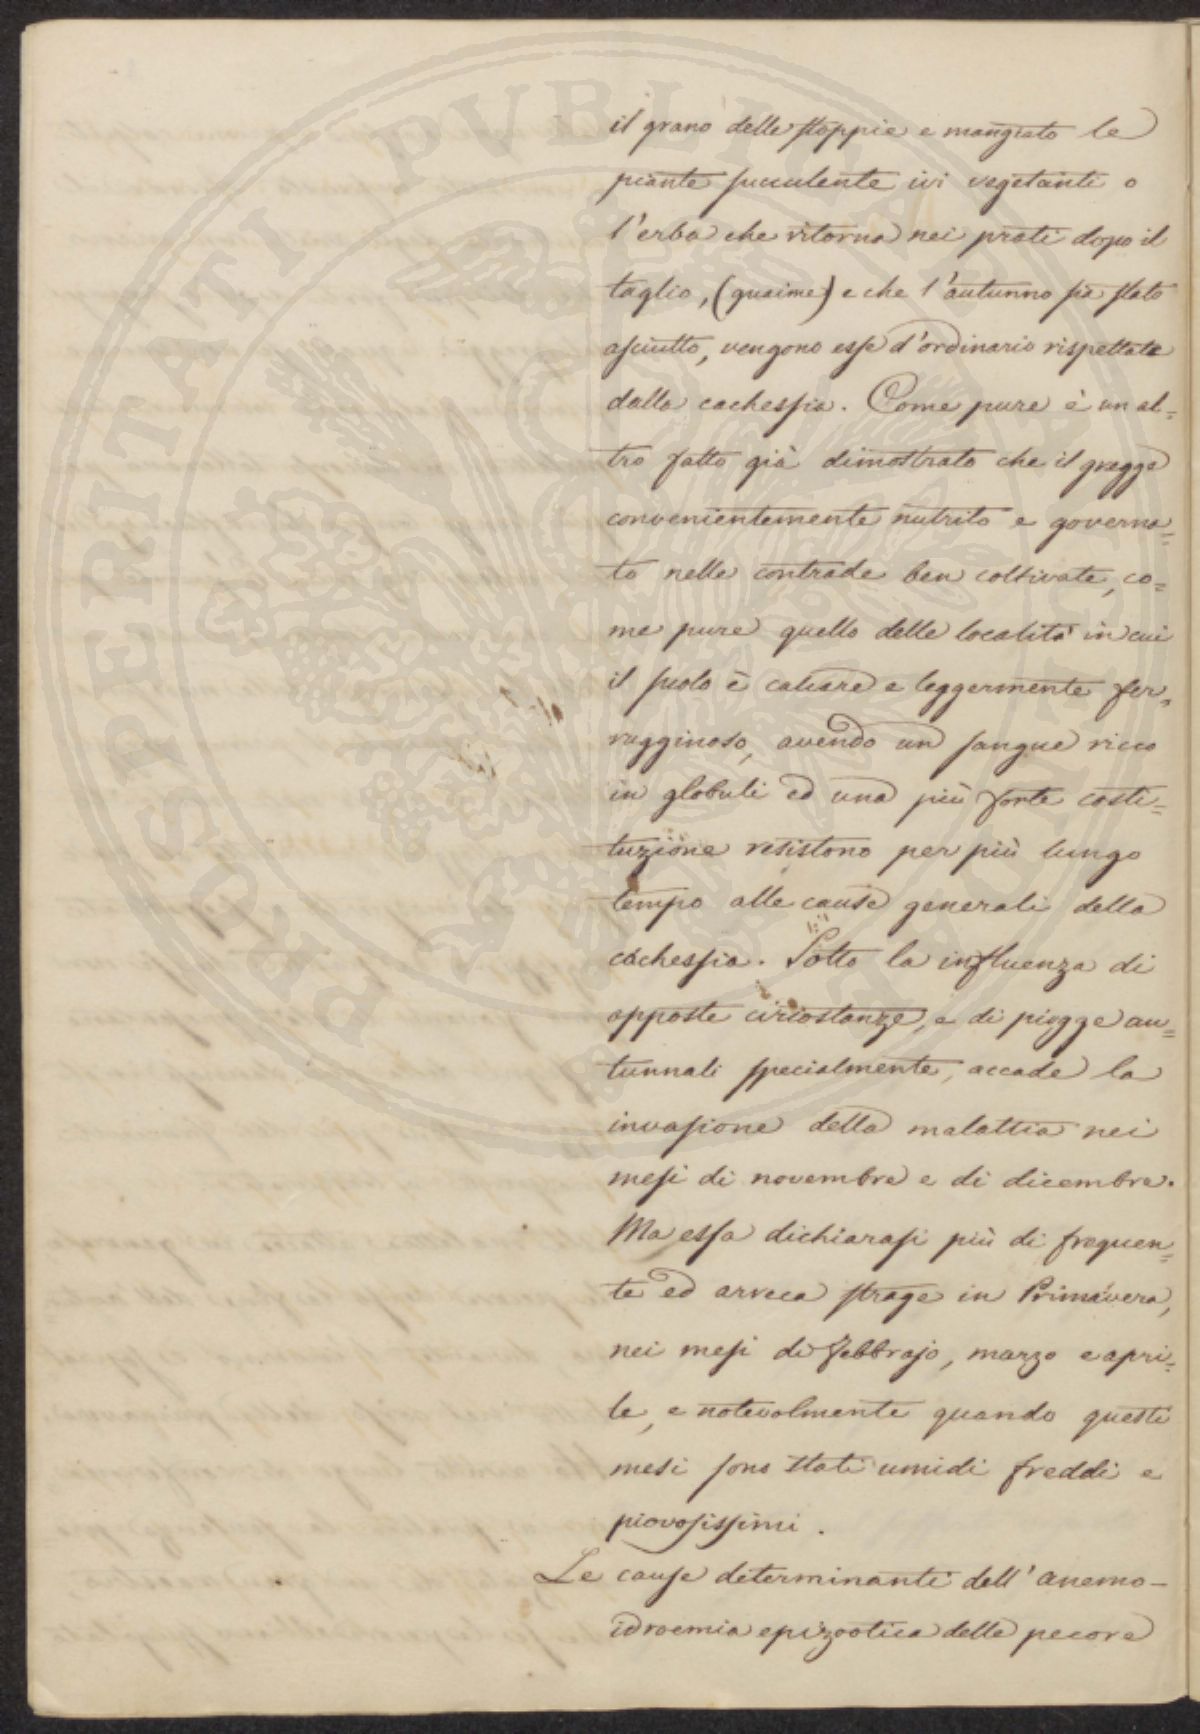 il grano delle stoppie e mangiato le
piante succulente ivi vegetanti o
l'erba che ritorna nei prati dopo il
taglio, (guaime) e che l'autunno sia stato
asciutto, vengono esse d'ordinario rispettate
dalla cachessia. Come pure è un al=
tro fatto già dimostrato che il gregge
convenientemente nutrito e governa=
to nelle contrade ben coltivate, co=
me pure quello delle località in cui
il suolo è calcare e leggermente fer=
rugginoso, avendo un sangue ricco
in globuli ed una più forte costi=
tuzione resistono per più lungo
tempo alle cause generali della
cachessia. Sotto la influenza di
opposte circostanze, e di piogge au=
tunnali specialmente, accade la
invasione della malattia nei
mesi di novembre e di dicembre.
Ma essa dichiarasi più di frequen=
te ed arreca strage in Primavera,
nei mesi di Febbrajo, marzo e apri=
le, e notevolmente quando questi
mesi sono stati umidi freddi e
piovosissimi.
Le cause determinanti dell'anemo-
idroemia epizootica delle pecore
PROSPERITATI PVBLICAE